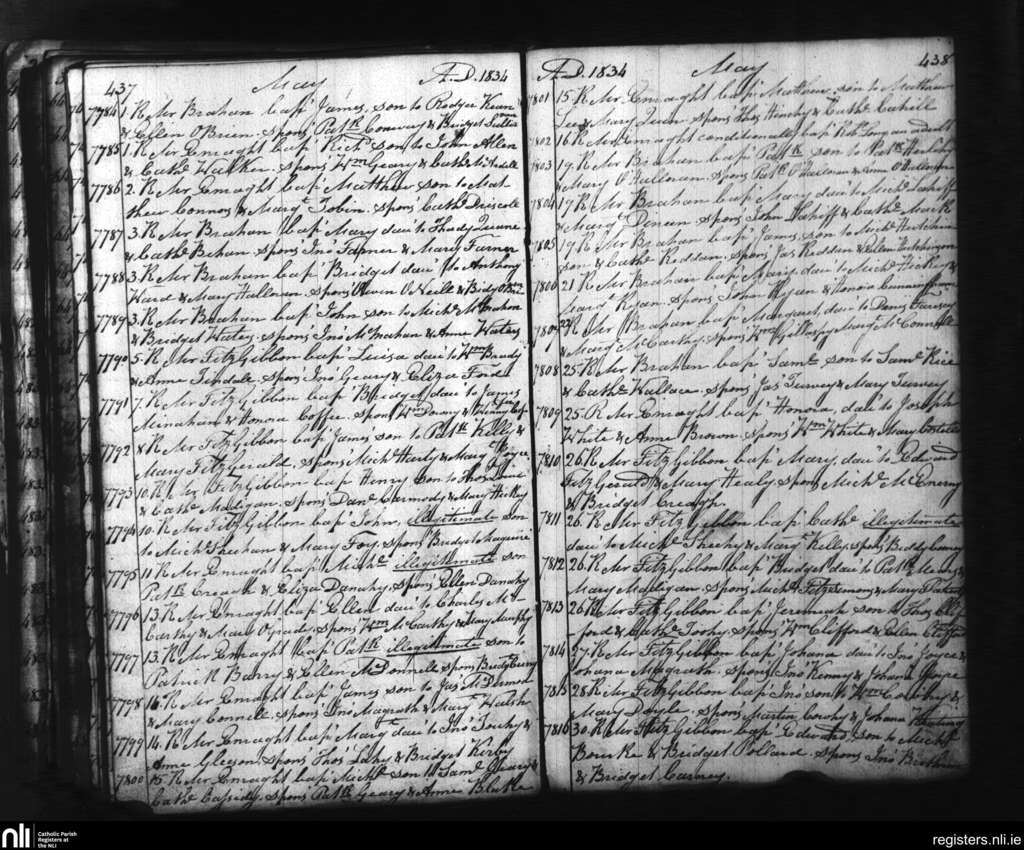 437
May
A.D. 1834
7784 1. R Mr Brahan bap' James, son to Rodger
& Ellen O'Brien. spons' Patk Conway & Bridget
7785 1. R Mr Enraght bap' Richd son to John Allen
& Cathe Walker. spons' Wm Geary & Cathe
7786 2. R Mr Enraght bap' Matthew son to Mat
thew Connors & Margt Tobin. spons' Cathe Driscole
7787 3. R Mr Brahan bap' Mary dau' to Thady
& Cathe Behan spons' Jno' Farner & Mary Farner
7788 3. R Mr Brahan bap' Bridget dau' to Anthony
Ward & Mary Halloran. spons' Owen O'Neill & Bridgt
7789 3. R Mr Brahan bap' John, son to Michl McMahon
& Bridget Waters. spons' Jno' McMahon & Anne Waters
7790 5. R Mr FitzGibbon bap' Luisa dau' to Wm Brady
& Anne Tindale. spons' Jno Geary & Eliza Ford
7791 7. R Mr FitzGibbon bap' Bridget dau' to James
Minahan & Honora Coffee. spons'
7792 8. R Mr FitzGibbon bap' James son to Patk Kelly &
Mary FitzGerald. spons' Michl Healy & Mary Joyce
7793 10. R Mr FitzGibbon bap' Henry son to Thos
& Cathe Madigan. spons' Danl Carmody & Mary Hickey
7794 10. R Mr FitzGibbon bap' John, illegitimate son
to Michl Sheehan & Mary Foy. spons' Bridget Maguire
7795 11 R Mr Enraght bap' Michl illegitimate son
Patk Creagh & Eliza Danahy. spons' Ellen Danahy
7796 13. R Mr Enraght bap' Ellen dau' to Charles Mc
Carthy & Mary Ogrady. spons' Wm McCarthy & Mary Murphy
7797 13. R Mr Enraght bap' Patk illegitimate son to
Patrick Barry & Ellen McDonnell spons' Bridgt Curry
7798 14. R Mr Enraght bap' James son to Jas McDermot
& Mary Connell. spons' Jno' Magrath & Mary Walsh
7799 14. R Mr Enraght bap' Margt dau' to Jno' Touhy &
Anne Gleeson. spons' Thos Lahy & Bridget Kirby
7800 15. R Mr Enraght bap' Michl son to Saml Geary &
Cathe Cassidy. spons' Patk Geary & Anne Blake
A.D. 1834
May
438
7801 15. R Mr Enraght bap' Mathew son to Mathew
& Mary Quan spons' Thos Hinchy & Cathe Cahill
7802 16 R Mr Enraght conditionally bap' Robt Long an adult
7803 19. R Mr Brahan bap' Patk son to Patk
& Mary O'Halloran. spons' Patk O'Halloran & Anne O'Halloran
7804 19. R Mr Brahan bap' Mary dau' to Michl
& Mary Dinan spons' John & Cathe
7805 19. R Mr Brahan bap' James, son to Michl Hutchin
son & Cathe Reddan. spons' Jas Reddan & Ellen Hutchinson
7806 21 R Mr Brahan bap' Mary, dau' to Michl Hickey &
Margt Ryan. spons' John Ryan & Honora
7807 R Mr Brahan bap' Margaret, dau' to Denis
& Mary McCarthy. spons' Wm & Margt McConnell
7808 25. R Mr Brahan bap' Saml son to Saml Rice
& Cathe Wallace. spons' Jas Turvey & Mary Turvey
7809 25. R Mr Enraght bap' Honora, dau' to Joseph
White & Anne Brown. spons' Wm White & Mary Costello
7810 26. R Mr FitzGibbon bap' Mary, dau' to Edward
FitzGerald & Mary Healy. spons' Michl McEnery
& Bridget Creagh.
7811 26. R Mr FitzGibbon bap' Cathe illegitimate
dau' to Michl Sheehy & Margt Kelly. spons' Biddy Cooney
7812 26. R Mr FitzGibbon bap' Bridget dau' to Patk
Mary Madigan. spons' Michl FitzSimons & Mary
7813 26. R Mr FitzGibbon bap' Jeremiah son to Thos Clif
-ford & Cathe Toohy. spons' Wm Clifford & Ellen Clifford
7814 27. R Mr FitzGibbon bap' Johana dau' to Jno' Joyce &
Johana Magrath. spons' Jno' Kenny & Johana Joyce
7815 28. R Mr FitzGibbon bap' Jno' son to Wm &
Mary Doyle. spons' Martin & Johana Keating
7816 30. R Mr FitzGibbon bap' Edward son to Michl
Bourke & Bridget Pollard spons' Jno'
& Bridget Carney.
nli
Catholic Parish
Registers at
the NLI
registers.nli.ie